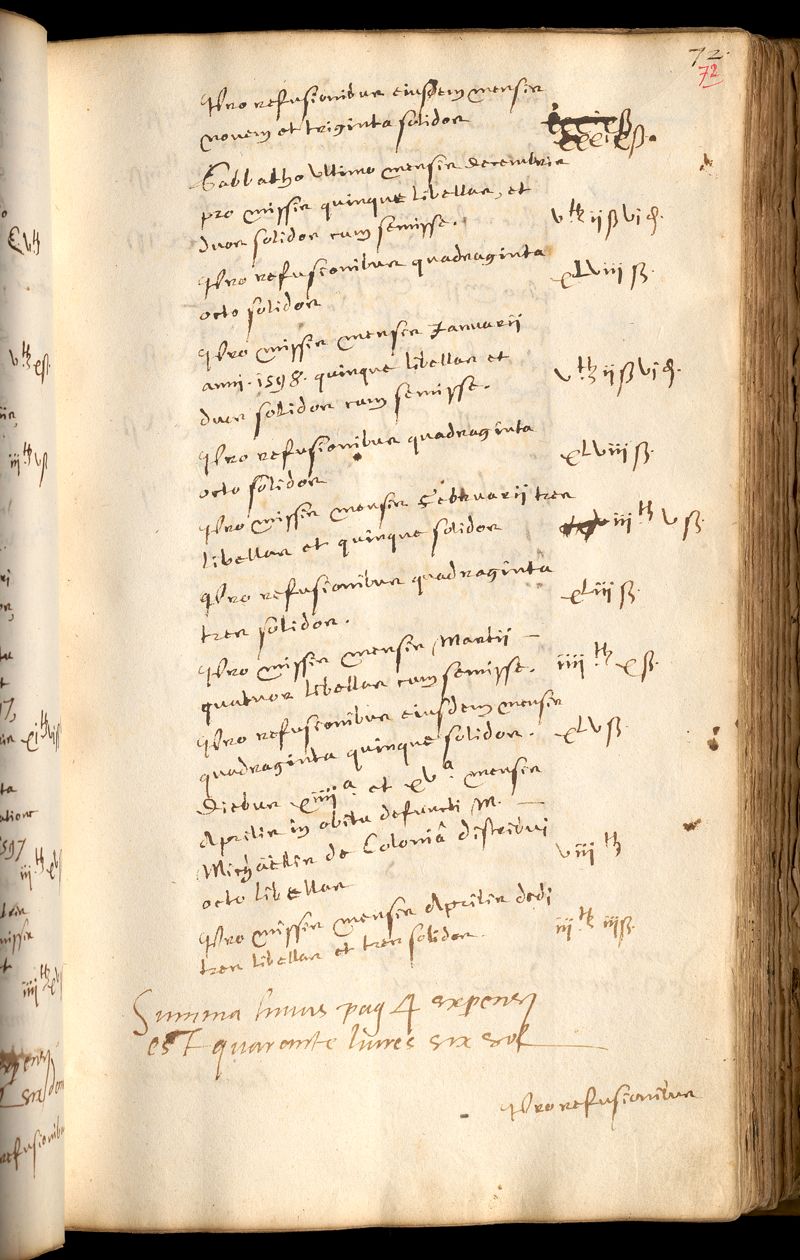 72.
72
Pro refusionibus eiusdem mensis
novem et triginta solidos
xxxix ß.
Sabbatho ultimo mensis decembris
pro missis quinque libellas, et
duos solidos cum semisse. v ₶ ii ß vi d.
Pro refusionibus quadraginta
octo solidos xLviii ß.
Pro missis mensis Januarii
anni . 1598. quinque libellas et
duos solidos cum semisse. v ₶ ii ß vi d.
Pro refusionibus quadraginta
octo solidos xLviii ß.
Pro missis mensis Februarii tres
libellas et quinque solidos iii ₶ v ß.
Pro refusionibus quadraginta
tres solidos. xLiii ß.
Pro missis mensis Martii —
quatuor libellas cum semisse. iiii ₶ x ß.
Pro refusionibus eiusdem mensis
quadraginta quinque solidos. xLv ß.
Diebus xiiii a. et xv a. mensis
Aprilis in obitu defuncti M. —
Michaelis de Coloniâ distribui
octo libellas viii ₶
Pro missis mensis Aprilis dedi
tres libellas et tres solidos. iii ₶ iii ß.
Summa huius pag expens
est quarante livres six sol
Pro refusionibus